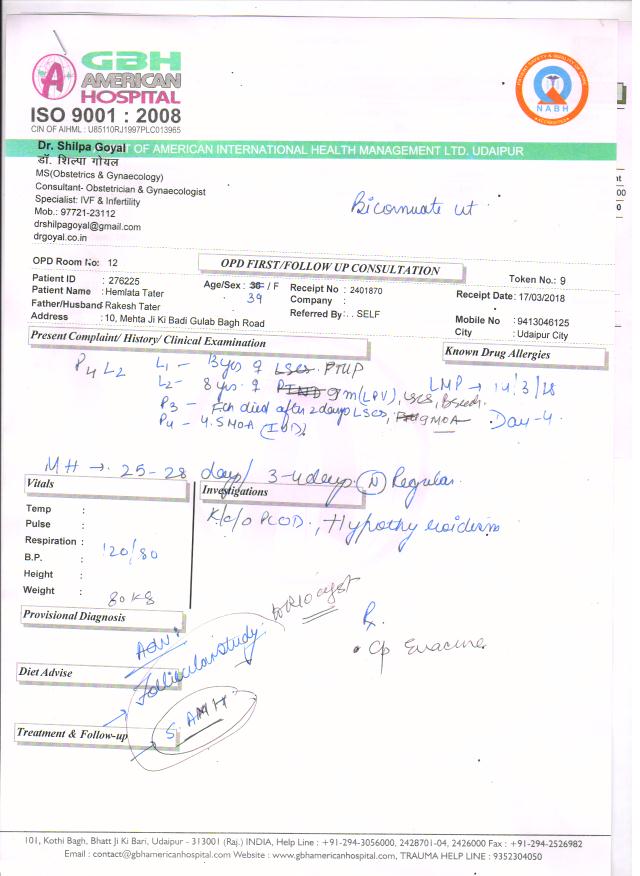 GBH
AMERICAN
HOSPITAL
ISO 9001 : 2008
CIN OF AIHML : U85110RJ1997PLC013965
NABH
Dr. Shilpa Goyal T OF AMERICAN INTERNATIONAL HEALTH MANAGEMENT LTD. UDAIPUR
डॉ. शिल्पा गोयल
MS(Obstetrics & Gynaecology)
Consultant- Obstetrician & Gynaecologist
Specialist: IVF & Infertility
Mob.: 97721-23112
drshilpagoyal@gmail.com
drgoyal.co.in
Bicornuate ut
OPD Room No: 12
OPD FIRST/FOLLOW UP CONSULTATION
Token No.: 9
Patient ID : 276225
Age/Sex : 36 / F
39
Receipt No : 2401870
Receipt Date: 17/03/2018
Patient Name : Hemlata Tater
Company :
Father/Husband Rakesh Tater
Referred By: . SELF
Mobile No : 9413046125
Address : 10, Mehta Ji Ki Badi Gulab Bagh Road
City : Udaipur City
Present Complaint/ History/ Clinical Examination
Known Drug Allergies
P4 L2 L1 - 13yrs LSCS
L2 - 8 yrs. 9m (LPV), LSCS,
LMP → 14/3/18
P3 - died after 2 days LSCS, MOA
Day-4
P4 - 4.5 MOA (IUD)
MH → 25-28 days/ 3-4 days. (N) Regular.
Vitals
Investigations
K/c/o PCOD, Hypothyroidism
Temp :
Pulse :
Respiration :
B.P. : 120/80
Height :
Weight : 80 kg
Provisional Diagnosis
Adv:
Follicular study.
Rx
• Cp
Diet Advise
S. AMH
Treatment & Follow-up
101, Kothi Bagh, Bhatt Ji Ki Bari, Udaipur - 313001 (Raj.) INDIA, Help Line : +91-294-3056000, 2428701-04, 2426000 Fax : +91-294-2526982
Email : contact@gbhamericanhospital.com Website : www.gbhamericanhospital.com, TRAUMA HELP LINE : 9352304050